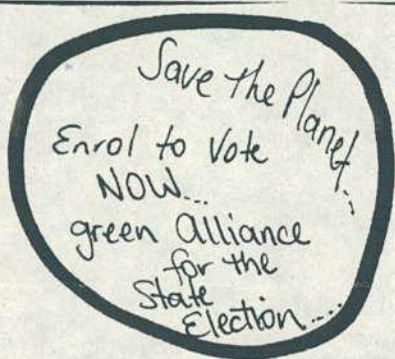 Save the Planet...
Enrol to Vote
NOW...
green Alliance
for the
State
Election....